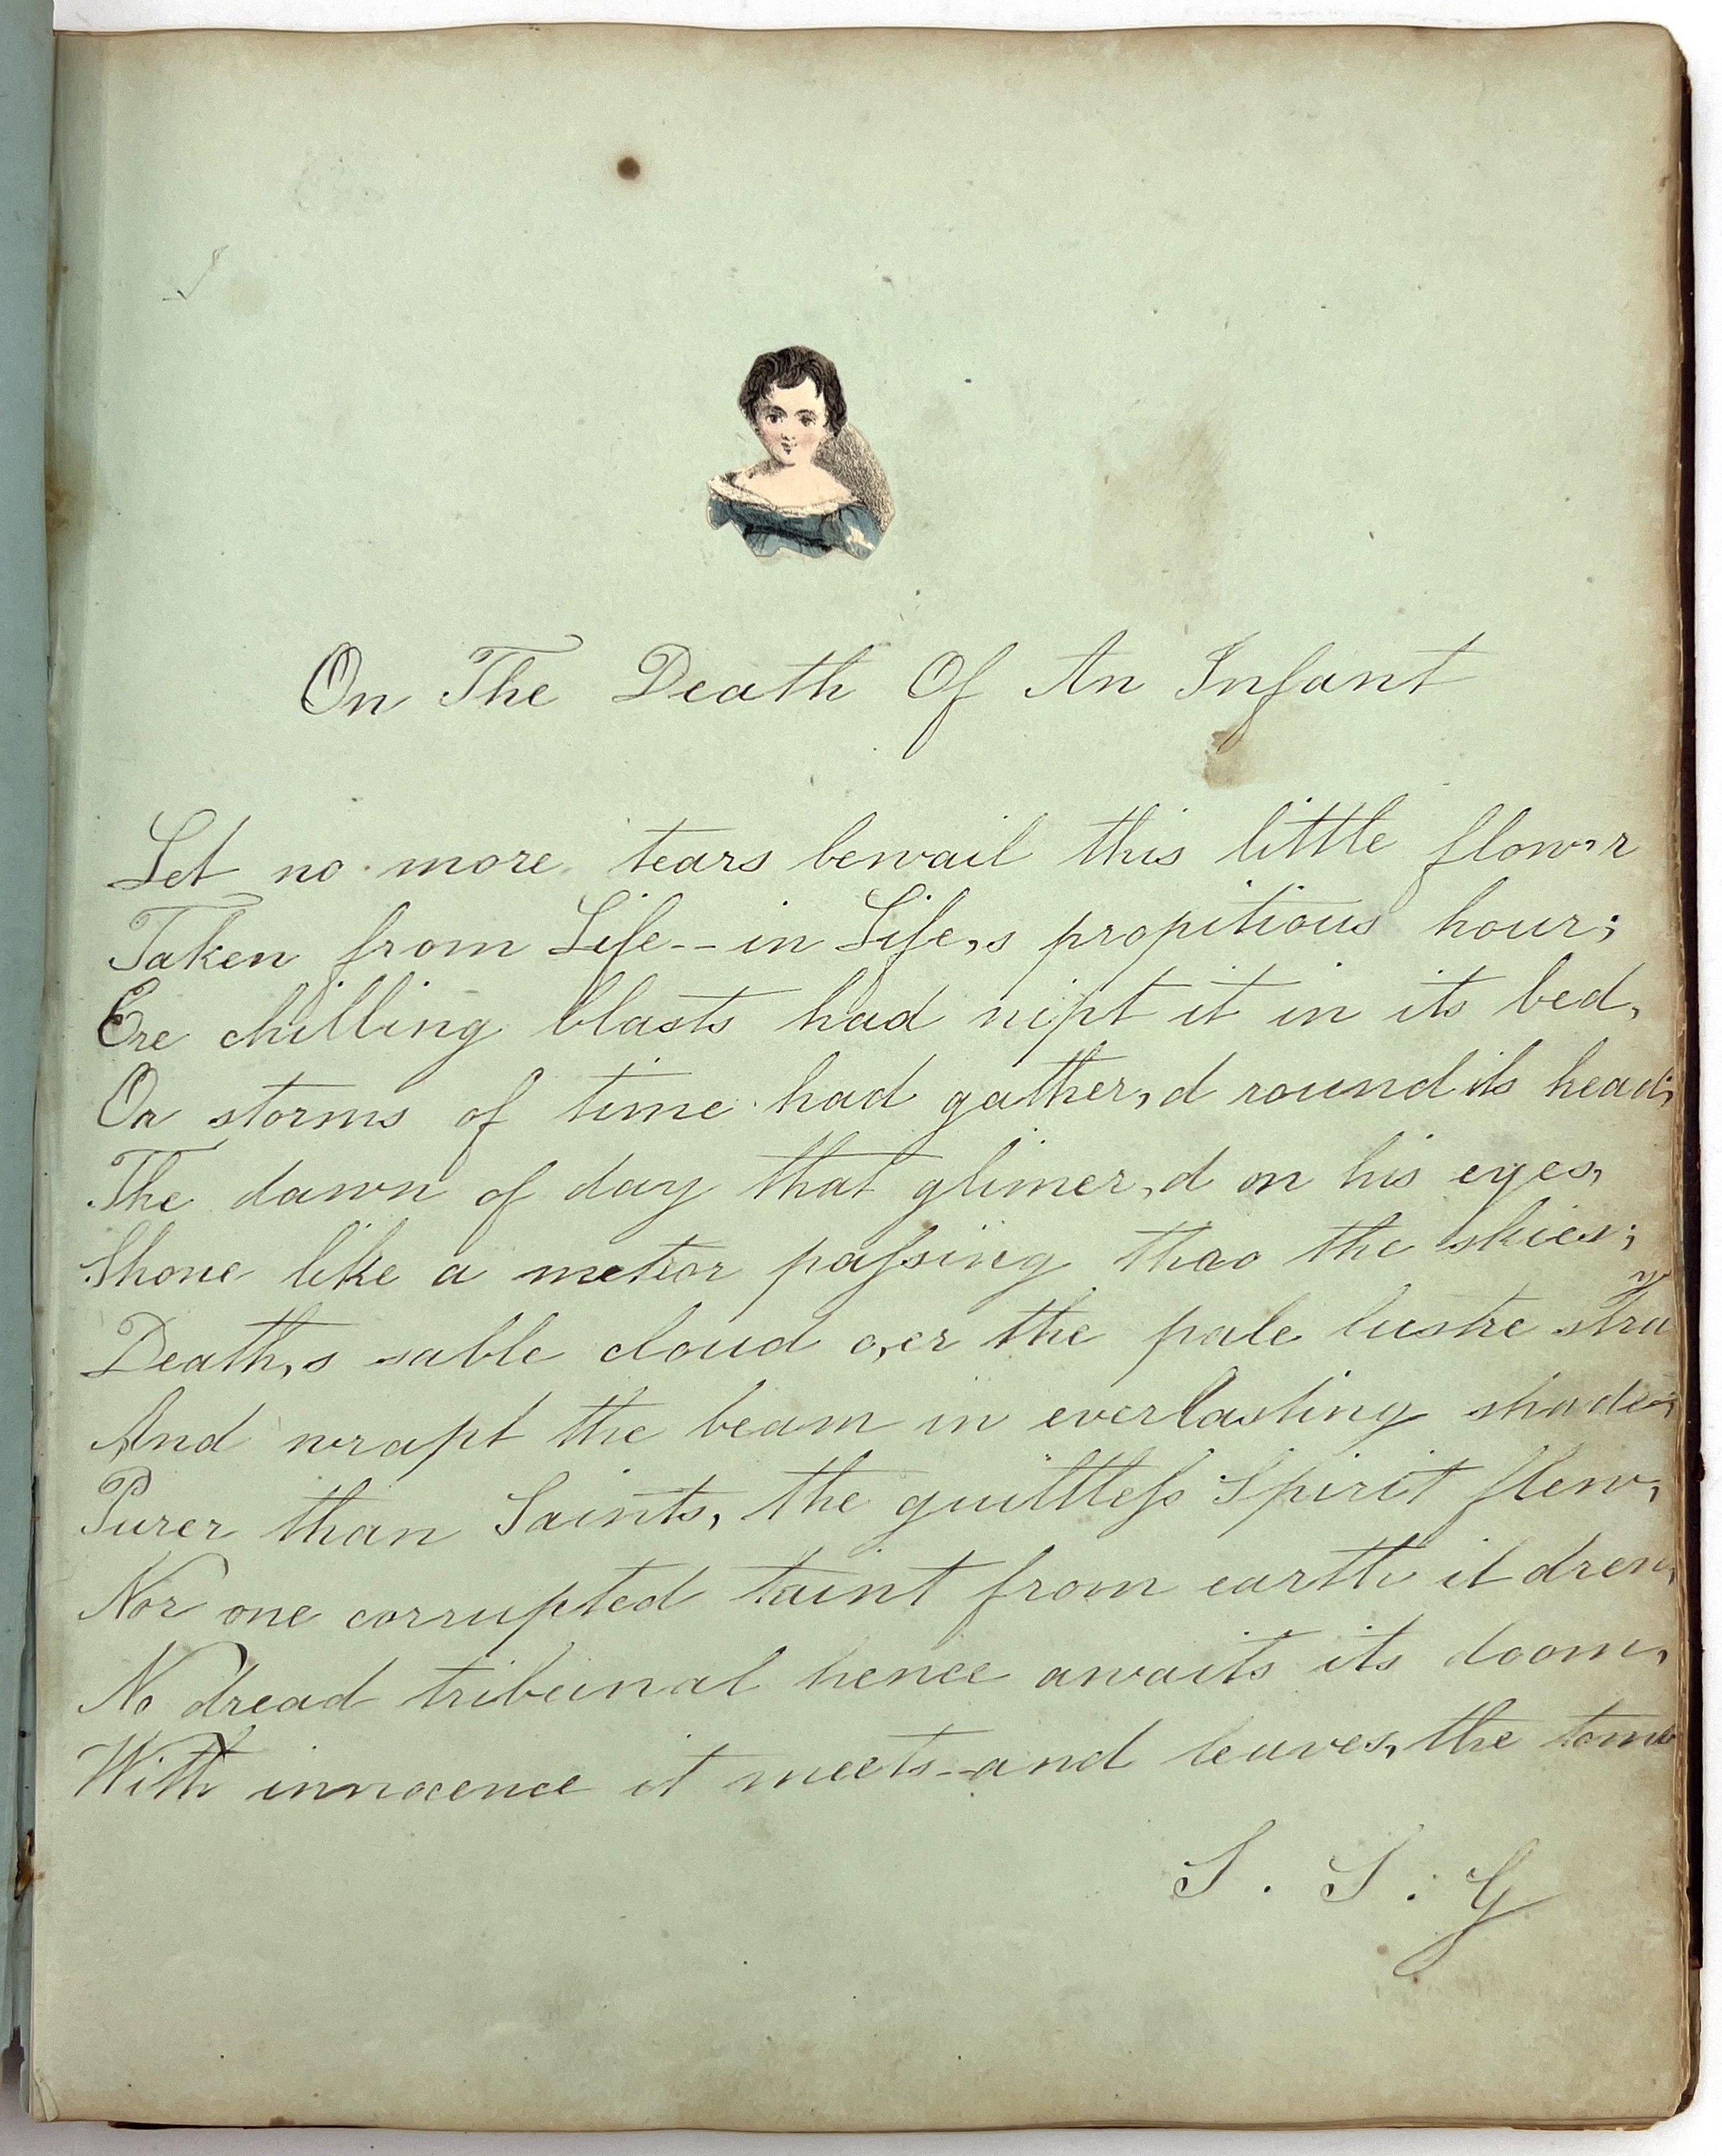 On The Death Of An Infant
Let no more tears bewail this little flower
Taken from Life -- in Life,s propitious hour;
Ere chilling blasts had nipt it in its bed,
Or storms of time had gather,d round its head;
The dawn of day that glimer,d on his eyes,
Shone like a meteor paſsing thro the skies;
Death,s sable cloud o,er the pale lustre
And wrapt the beam in everlasting shade;
Purer than Saints, the guiltleſs Spirit flew,
Nor one corrupted taint from earth it drew,
No dread tribunal hence awaits its doom,
With innocence it meets -- and leaves, the tomb
S. S. G